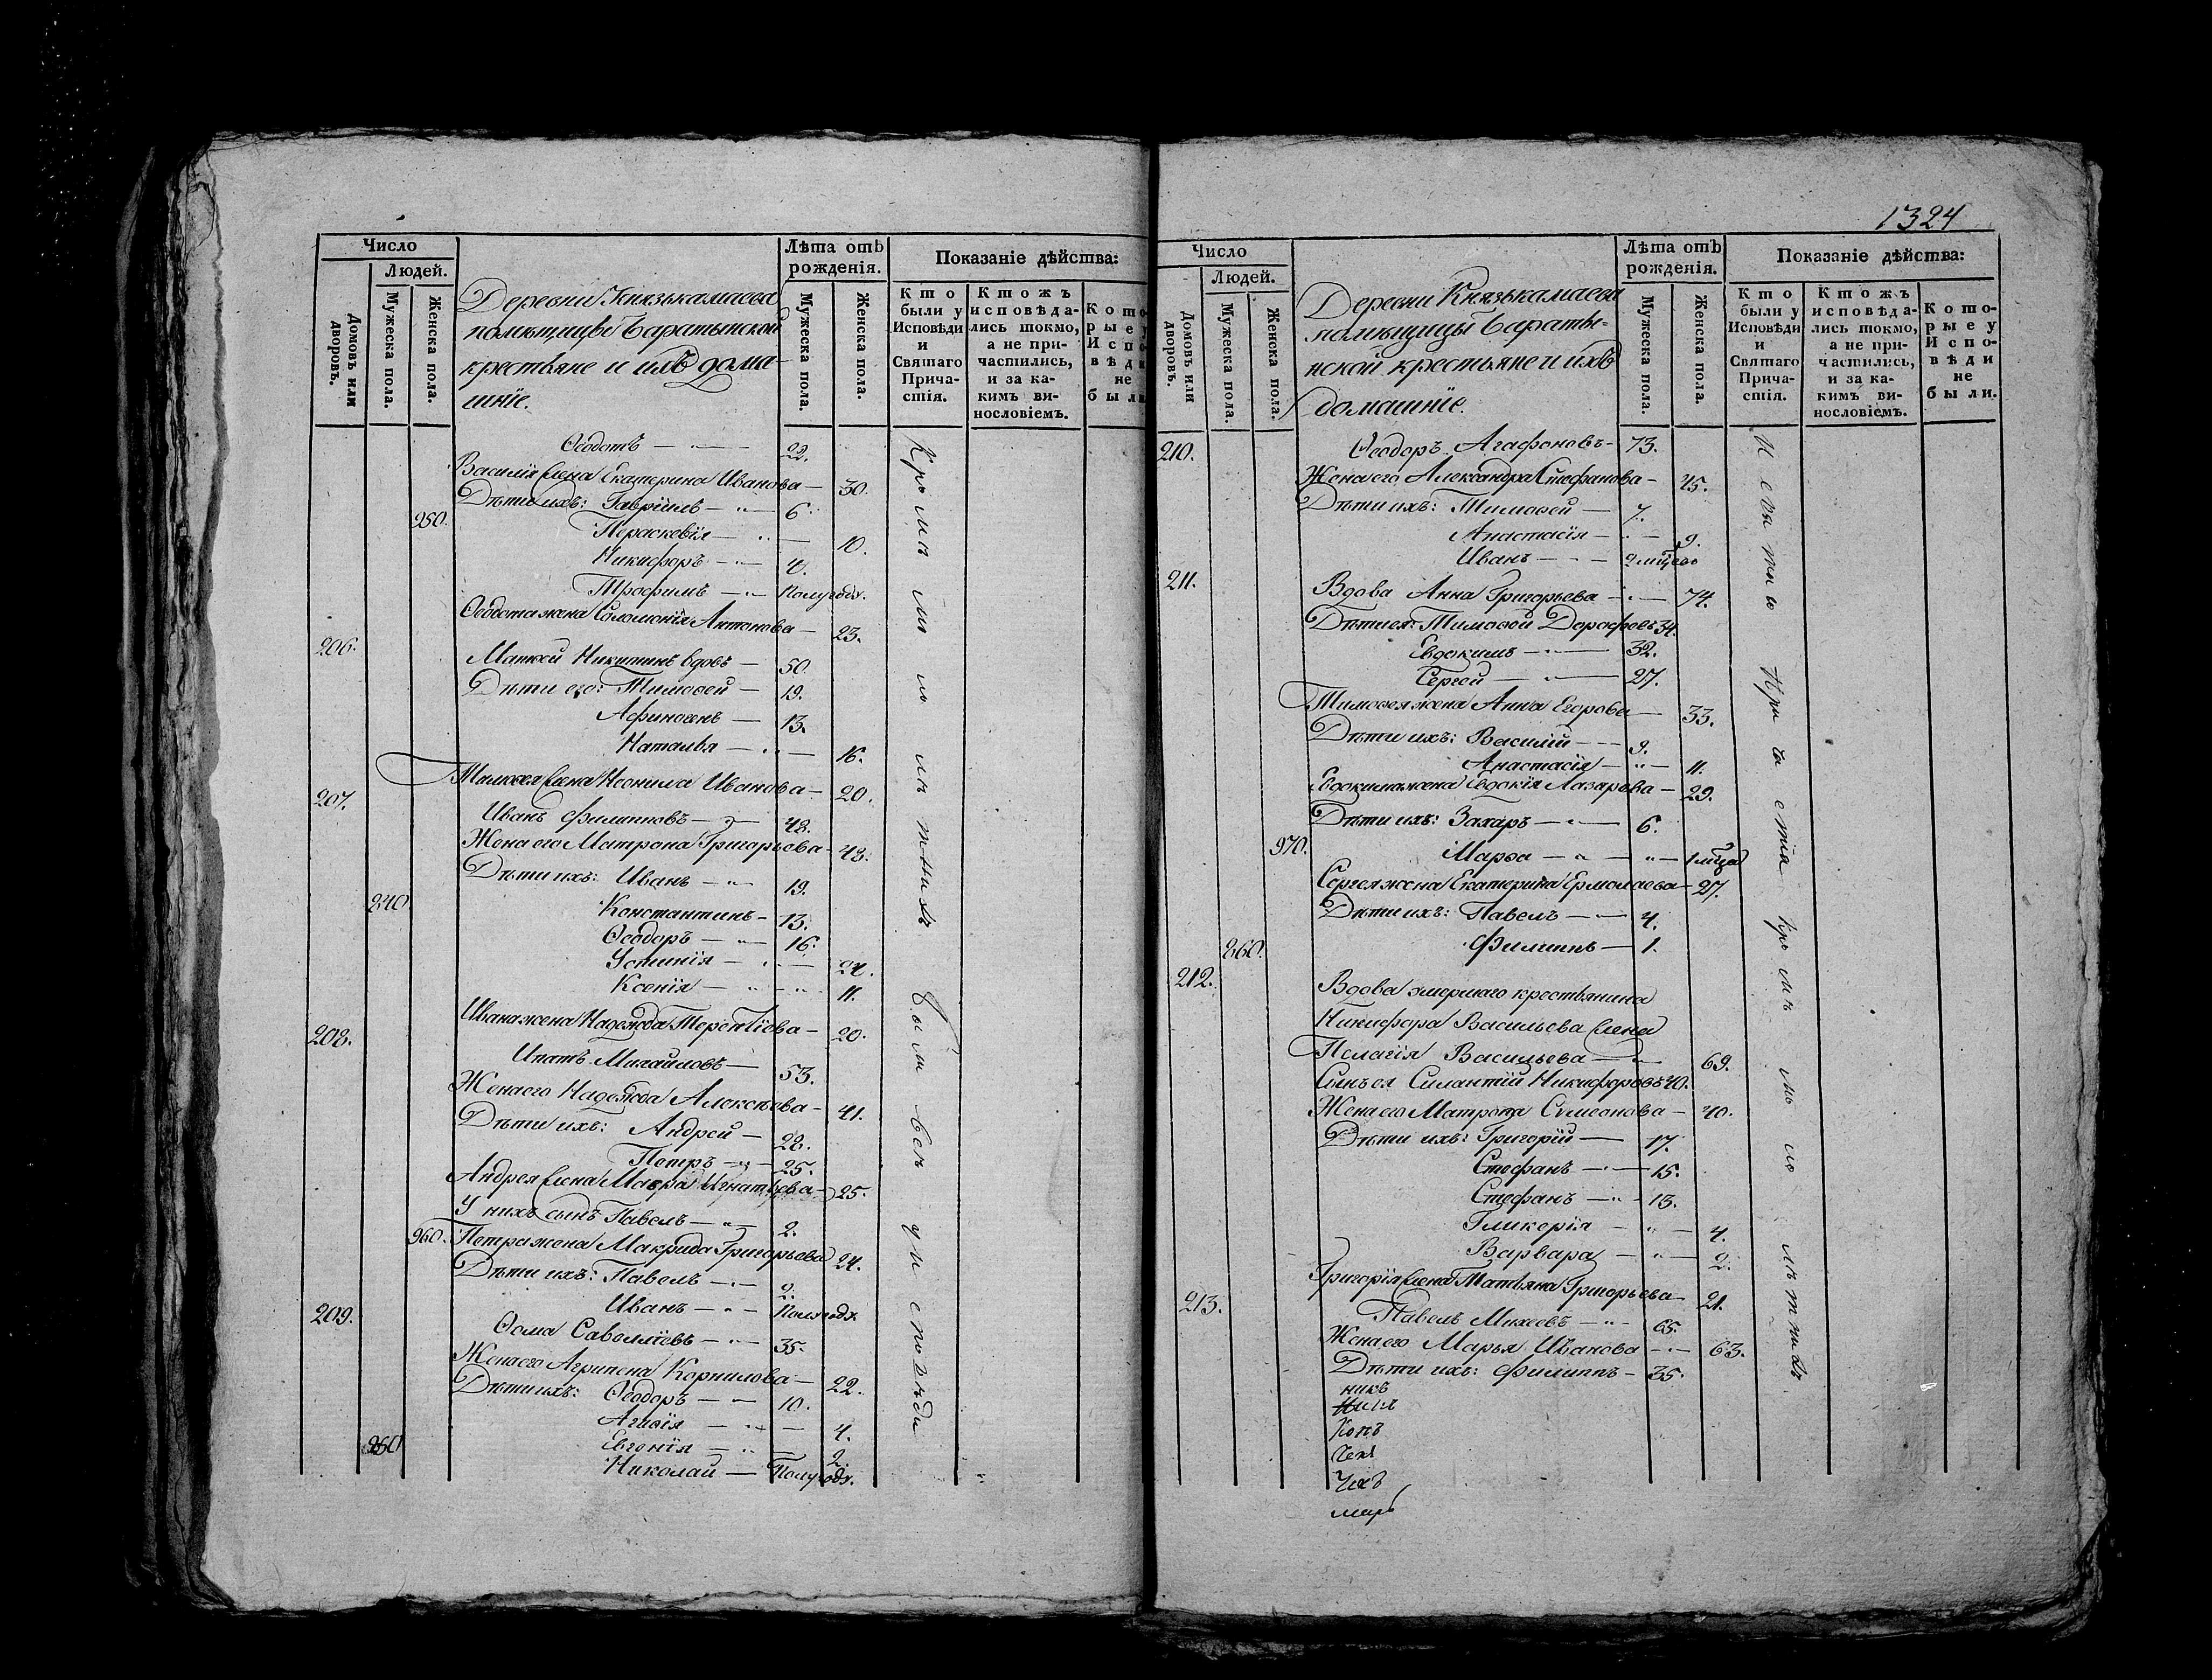 Число
Людей.
Домовъ или дворовъ.
Мужеска пола.
Женска пола.
Деревни Князькамаева
помѣщицы Баратынской
крестьяне и ихъ дома-
шніе.
Лѣта отъ
рожденія.
Мужеска пола.
Женска пола.
Показаніе дѣйства:
Кто
были у
Исповѣди
и
Святаго
Прича-
стія.
Ктожъ
исповѣда-
лись токмо,
а не при-
частились,
и за ка-
кимъ ви-
нословіемъ.
Кото
рые у
Испо-
вѣди
не
были.
Ѳеодотъ — 22.
Василія жена Екатерина Иванова — 30.
Дѣти ихъ: Гавріилъ — 6.
950. Параскевія — 10.
Никифоръ — 4.
Трофимъ — Полугоду.
Ѳеодота жена Соломонія Антонова — 23.
206. Матѳей Никитинъ вдовъ — 50
Дѣти его: Тимоѳей — 19.
Афиногенъ — 13.
Наталья — 16.
Тимоѳея жена Неонила Иванова — 20.
207. Иванъ Филипповъ — 48.
Жена его Матрона Григорьева — 48.
Дѣти ихъ: Иванъ — 19.
840. Константинъ — 13.
Ѳеодоръ — 16.
Устинія — 24.
Ксенія — 11.
Ивана жена Надежда Терентіева — 20.
208. Ипатъ Михайловъ — 53.
Жена его Надежда Алексѣева — 41.
Дѣти ихъ: Андрей — 28.
Петръ — 25.
Андрея жена Мавра Игнатьева — 25.
У нихъ сынъ Павелъ — 2.
960. Петра жена Макрида Григорьева 24.
Дѣти ихъ: Павелъ — 2.
Иванъ — Полугоду.
209. Ѳома Савеліевъ — 35.
Жена его Агрипена Корнилова — 22.
Дѣти ихъ: Ѳеодоръ — 10.
Агаѳія — 4.
Евгенія — 2.
Николай — Полугоду.
Кромѣ малолѣтныхъ были всѣ у исповѣди
1324
Число
Людей.
Домовъ или дворовъ.
Мужеска пола.
Женска пола.
Деревни Князькамаева
помѣщицы Бараты-
нской крестьяне и ихъ
домашніе.
Лѣта отъ
рожденія.
Мужеска пола.
Женска пола.
Показаніе дѣйства:
Кто
были у
Исповѣди
и
Святаго
Прича-
стія.
Ктожъ
исповѣда-
лись токмо,
а не при-
частились,
и за ка-
кимъ ви-
нословіемъ.
Кото-
рые у
Испо-
вѣди
не
были.
210. Ѳеодоръ Агафоновъ — 73.
Жена его Александра Стефанова — 45.
Дѣти ихъ: Тимоѳей — 7.
Анастасія — 9.
Иванъ —
211. Вдова Анна Григорьева — 74.
Дѣти ея: Тимоѳей Дорофѣевъ 34.
Евдокимъ — 32.
Сергей — 27.
Тимоѳея жена Анна Егорова — 33.
Дѣти ихъ: Василій — 9.
Анастасія — 11.
Евдокима жена Евдокія Лазарова — 29.
Дѣти ихъ: Захаръ — 6.
970. Марѳа —
Сергея жена Екатерина Ермолаева — 27.
Дѣти ихъ: Павелъ — 4.
860. Филиппъ — 1.
212. Вдова умершаго крестьянина
Никифора Васильева жена
Пелагія Васильева — 69.
Сынъ ея Силантій Никифоровъ 40.
Жена его Матрона Симеонова — 40.
Дѣти ихъ: Григорій — 17.
Стефанъ — 15.
Стефанъ — 13.
Гликерія — 4.
Варвара — 2.
Григорія жена Татьяна Григорьева — 21.
213. Павелъ Михеевъ — 65.
Жена его Марья Иванова — 63.
Дѣти ихъ: Филиппъ — 35.
И святаго Причастія кромѣ малолѣтныхъ